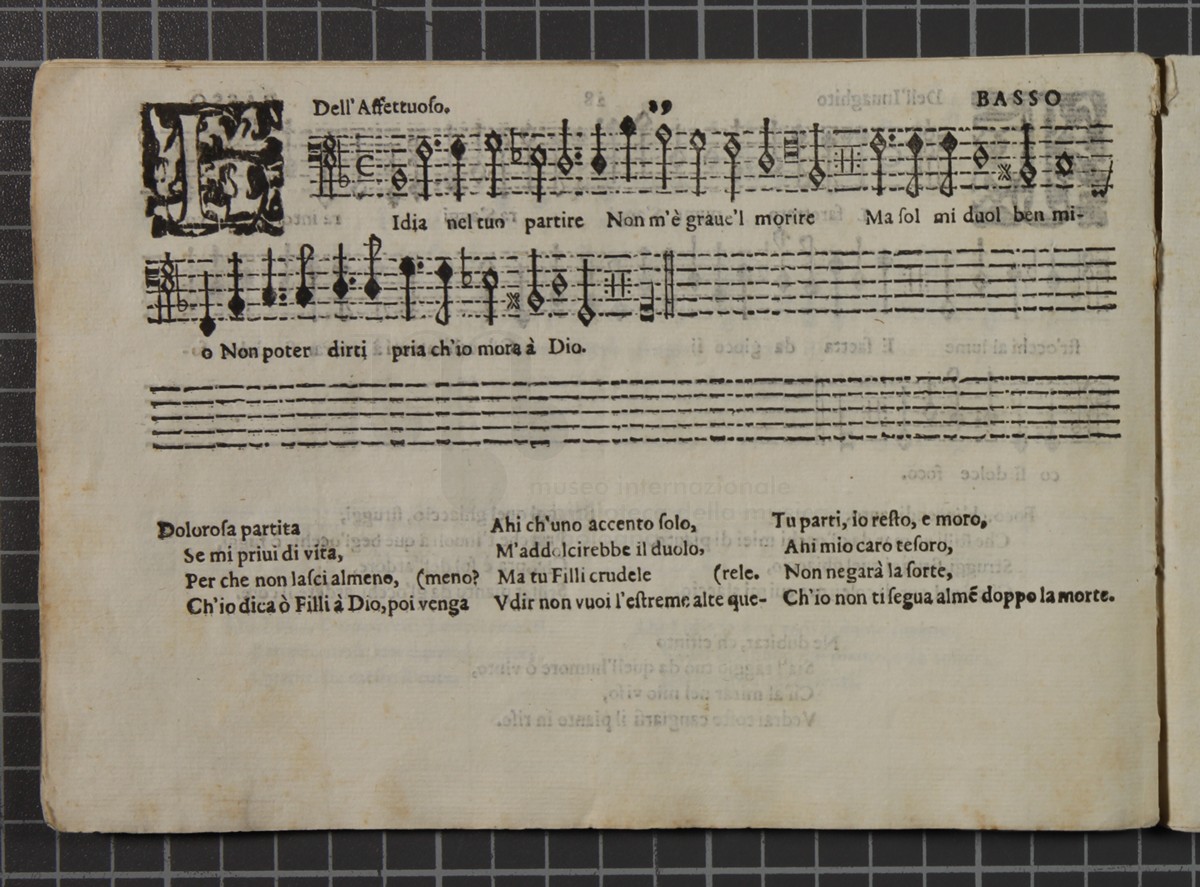 Dell'Affettuoſo.
BASSO
F Idia nel tuo partire Non m'è graue'l morire Ma ſol mi duol ben mi-
o Non poter dirti pria ch'io mora à Dio.
museo internazionale
Doloroſa partita
Se mi priui di vita,
Per che non laſci almeno, (meno?
Ch'io dica ò Filli à Dio, poi venga
Ahi ch'uno accento ſolo,
M'addolcirebbe il duolo,
Ma tu Filli crudele (rele.
Vdir non vuoi l'eſtreme alte que-
Tu parti, io reſto, e moro,
Ahi mio caro teſoro,
Non negarà la ſorte,
Ch'io non ti ſegua almẽ doppo la morte.